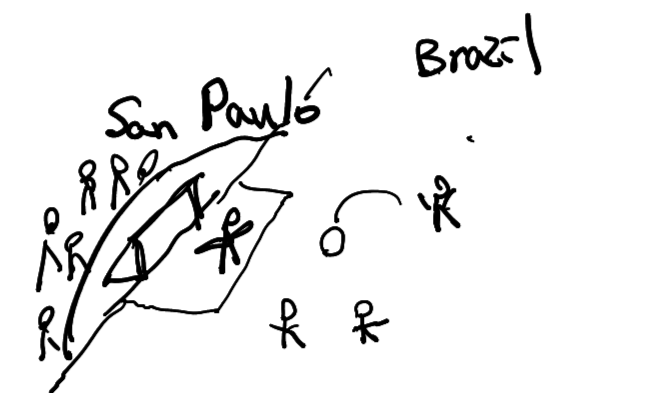 Brazil
San Paulo